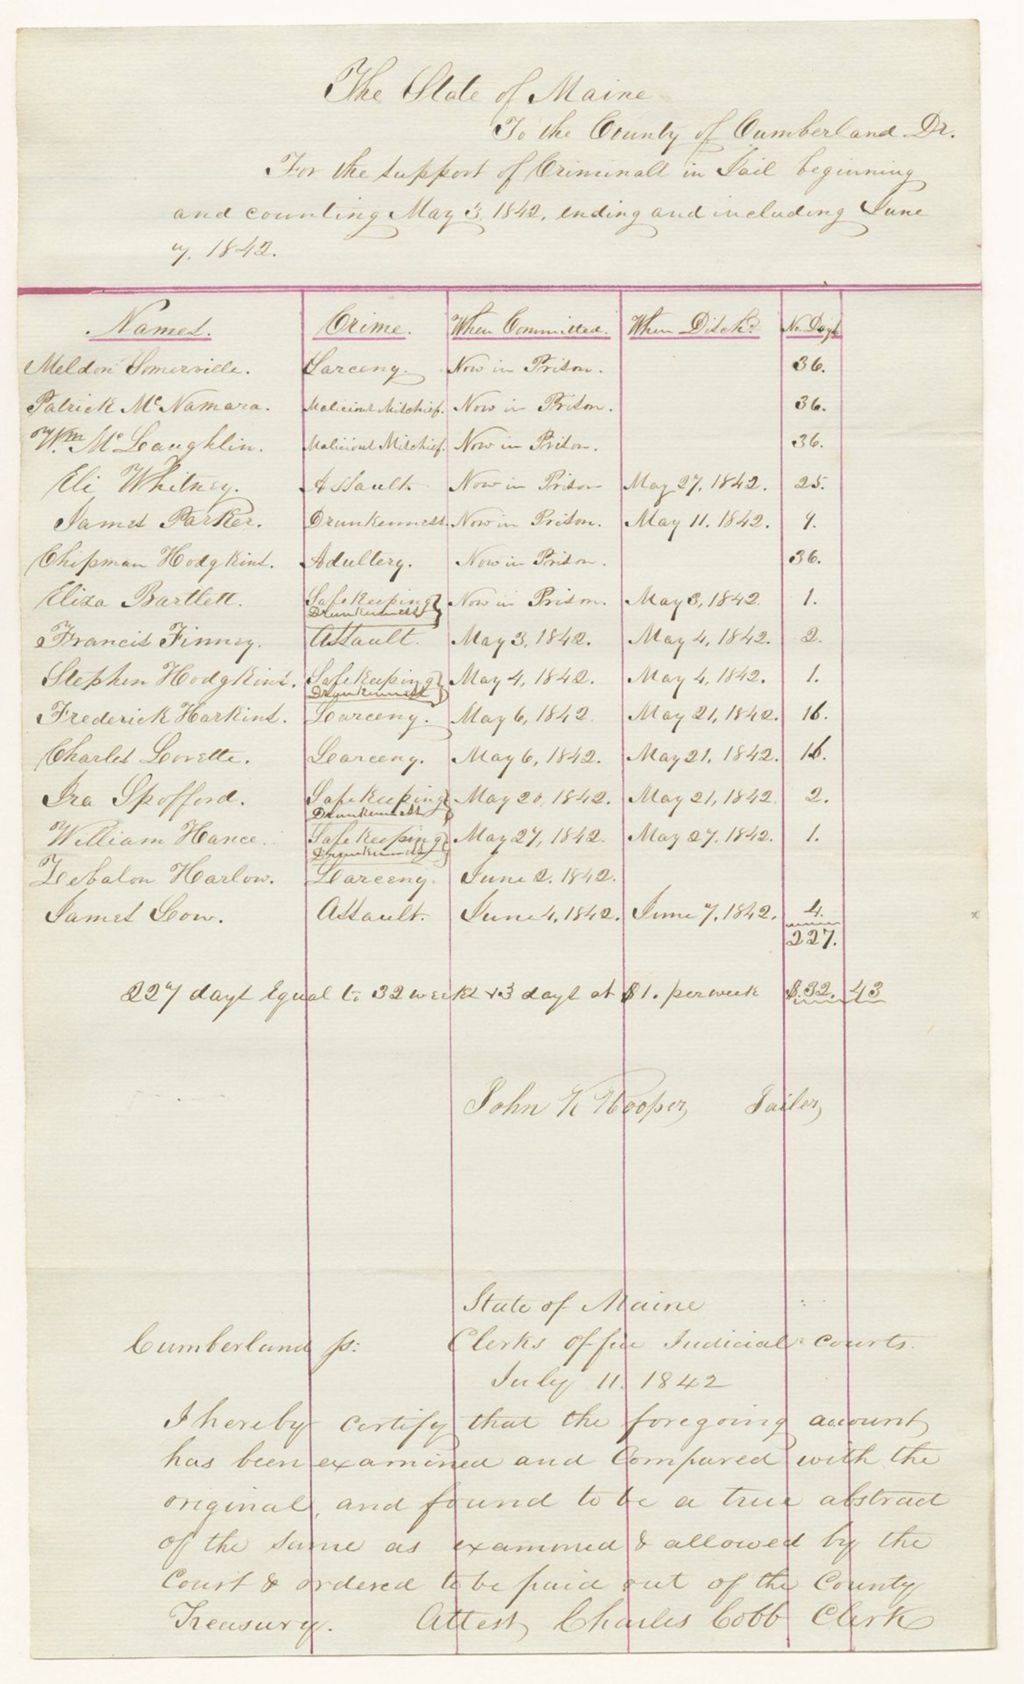 The State of Maine
To the County of Cumberland Dr.
For the support of Criminals in Jail beginning
and counting May 3, 1842, ending and including June
7, 1842.
Names. Crime. When Committed. When Disch.d No. Days
Meldon Somerville. Larceny. Now in Prison. 36.
Patrick Mc Namara. Malicious Mischief. Now in Prison. 36.
Wm. Mc Laughlin. Malicious Mischief. Now in Prison. 36.
Eli Whitney. Assault. Now in Prison May 27, 1842. 25.
James Parker. Drunkenness Now in Prison. May 11, 1842. 9.
Chipman Hodgkins. Adultery. Now in Prison. 36.
Eliza Bartlett. Safekeeping Drunkenness } Now in Prison. May 3, 1842. 1.
Francis Finney. Assault. May 3, 1842. May 4, 1842. 2.
Stephen Hodgkins. Safekeeping Drunkenness } May 4, 1842. May 4, 1842. 1.
Frederick Harkins. Larceny. May 6, 1842. May 21, 1842. 16.
Charles Lovette. Larceny. May 6, 1842. May 21, 1842. 16.
Ira Spofford. Safekeeping Drunkenness } May 20, 1842. May 21, 1842. 2.
William Hance. Safekeeping Drunkenness } May 27, 1842. May 27, 1842. 1.
Zebalon Harlow. Larceny. June 2, 1842.
James Low. Assault. June 4, 1842. June 7, 1842. 4.
227.
227 days Equal to 32 weeks & 3 days at $1. per week $.32. 43
John K Hooper, Jailer,
State of Maine
Cumberland ss: Clerks office Judicial courts.
July 11. 1842
I hereby certify that the foregoing account
has been examined and Compared with the
original, and found to be a true abstract
of the same as examined & allowed by the
Court & ordered to be paid out of the County
Treasury. Attest, Charles Cobb Clerk